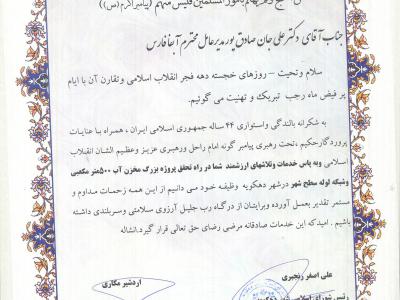 من اصبح و لم یهتم بامور المسلمین فلیس منهم (پیامبر اکرم(ص))
جناب آقای دکتر علی جان صادق پور مدیر عامل محترم آبفا فارس
سلام وتحیت – روزهای خجسته دهه فجر انقلاب اسلامی وتقارن آن با ایام
پر فیض ماه رجب تبریک و تهنیت می گوئیم.
به شکرانه بالندگی واستواری ۴۴ ساله جمهوری اسلامی ایران ، همراه با عنایات
پروردگارحکیم ،تحت رهبری پیامبر گونه امام راحل ورهبری عزیز وعظیم الشان انقلاب
اسلامی وبه پاس خدمات وتلاشهای ارزشمند شما در راه تحقق پروژه بزرگ مخزن آب ۵۰۰متر مکعبی
وشبکه لوله سطح شهر درشهر دهکویه وظیفه خود می دانیم از این همه زحمات مداوم و
مستمر تقدیر بعمل آورده وبرایتان از درگاه رب جلیل آرزوی سلامتی وسربلندی داشته
باشیم . امید که این خدمات صادقانه مرضی رضای حق تعالی قرار گیرد.انشاله
علی اصغر رنجبری
اردشیر مکاری
رئیس شورای اسلامی شهر